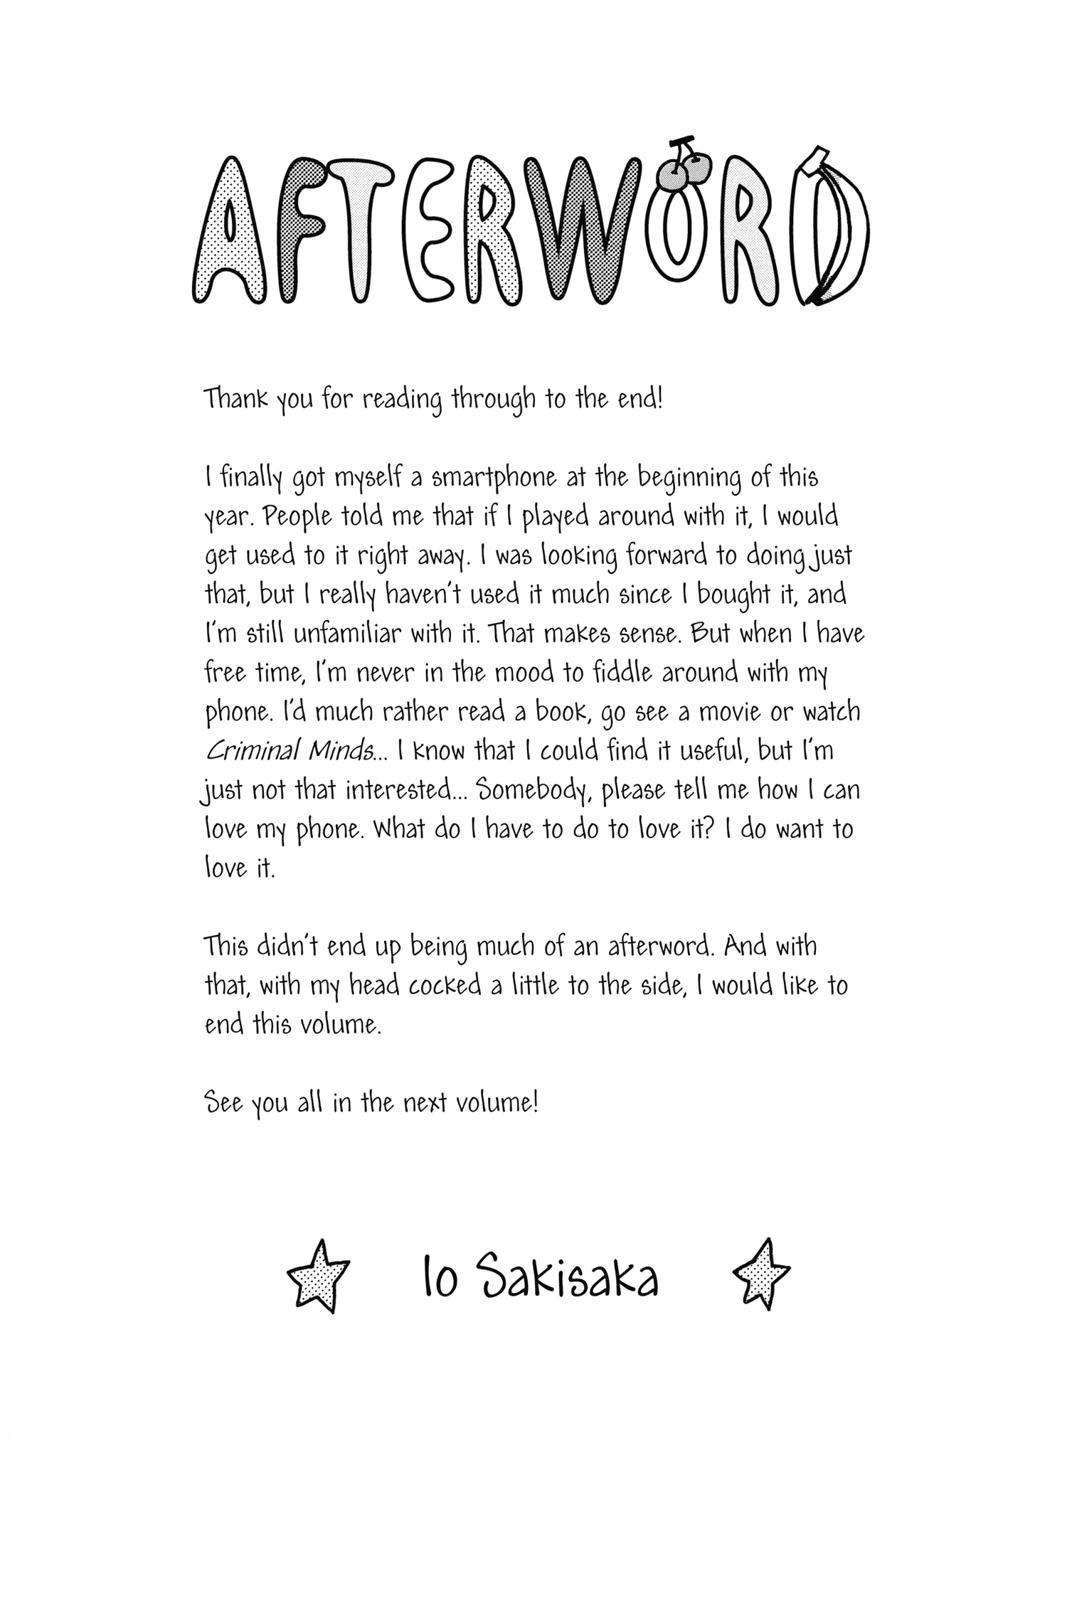 AFTERWORD
Thank you for reading through to the end!
I finally got myself a smartphone at the beginning of this
year. People told me that if I played around with it, I would
get used to it right away. I was looking forward to doing just
that, but I really haven't used it much since I bought it, and
I'm still unfamiliar with it. That makes sense. But when I have
free time, I'm never in the mood to fiddle around with my
phone. I'd much rather read a book, go see a movie or watch
Criminal Minds... I know that I could find it useful, but I'm
just not that interested... Somebody, please tell me how I can
love my phone. What do I have to do to love it? I do want to
love it.
This didn't end up being much of an afterword. And with
that, with my head cocked a little to the side, I would like to
end this volume.
See you all in the next volume!
Io Sakisaka